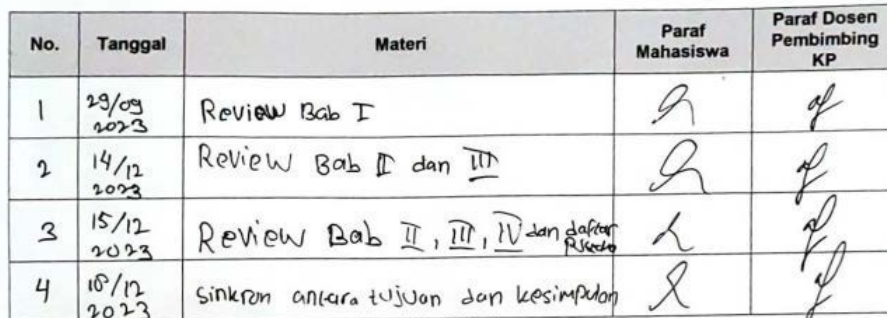 No. Tanggal Materi Paraf Mahasiswa Paraf Dosen Pembimbing KP
1 29/09 2023 Review Bab I
2 14/12 2023 Review Bab II dan III
3 15/12 2023 Review Bab II, III, IV dan daftar
4 18/12 2023 Sinkron antara tujuan dan kesimpulan